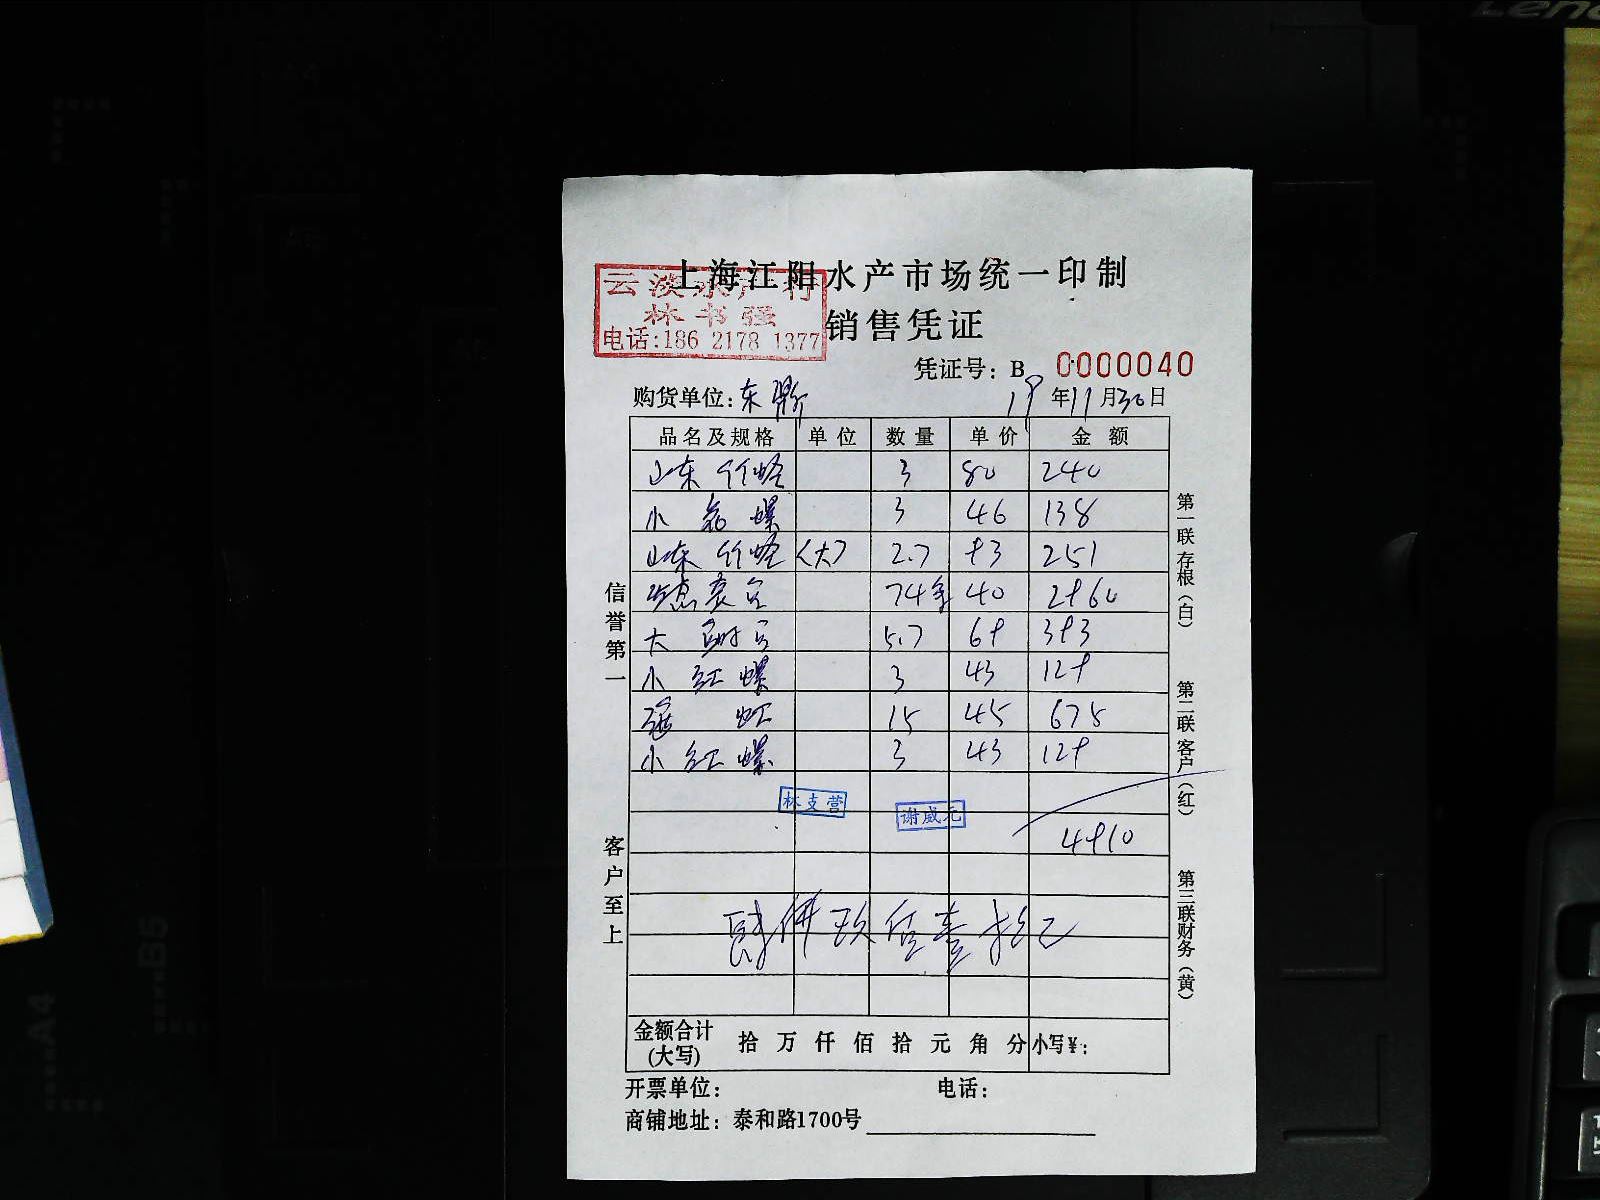 Leno
上海江阳水产市场统一印制
云淡水产行
林书强
电话:186 2178 1377
销售凭证
凭证号: B 0000040
购货单位: 东
19年11月30日
品名及规格 单位 数量 单价 金额
山东竹蛏 3 80 240
小 螺 3 46 138
山东竹蛏 (大) 2.7 93 251
74 40 2960
大 5.7 69 393
小红螺 3 43 129
虹 15 45 675
小红螺 3 43 129
林支营
谢威元
4910
肆仟玖佰壹拾元
金额合计(大写) 拾 万 仟 佰 拾 元 角 分 小写¥:
开票单位: 电话:
商铺地址: 泰和路1700号
信誉第一
客户至上
第一联 存根(白)
第二联 客户(红)
第三联 财务(黄)
B5
A4